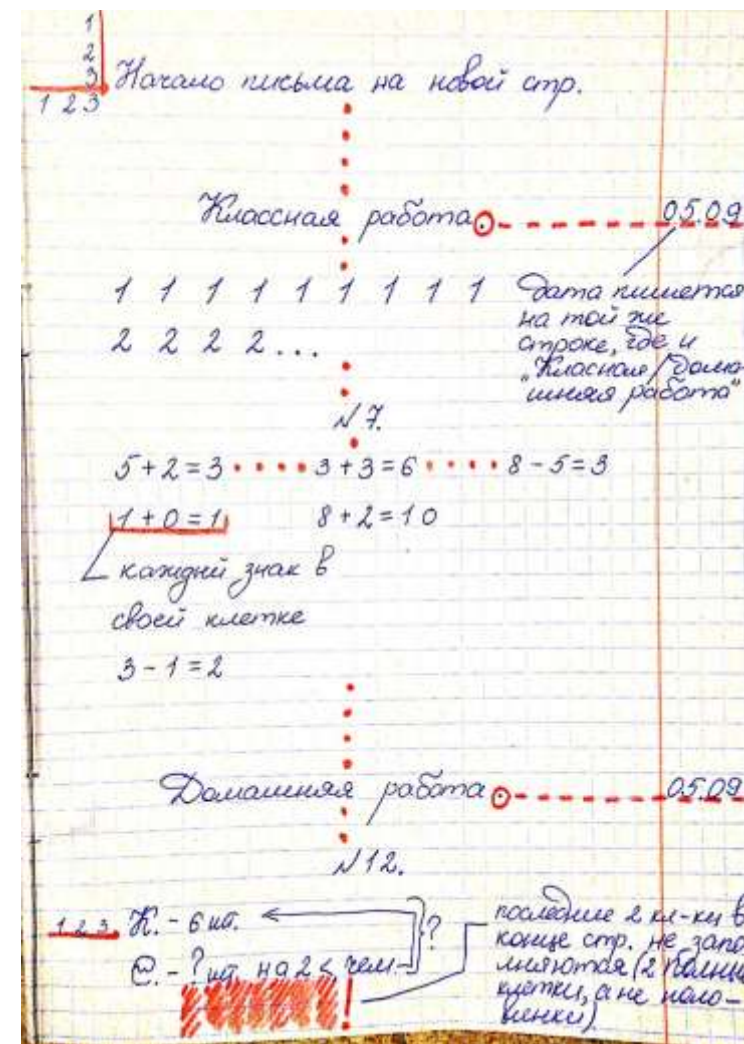 1
2
3 Начало письма на новой стр.
1 2 3
Классная работа. 05.09
1 1 1 1 1 1 1 1 1
2 2 2 2...
дата пишется
на той же
строке, где и
"Класная/Дома-
шняя работа"
№7.
5+2=3 3+3=6 8-5=3
1+0=1 8+2=10
каждый знак в
своей клетке
3-1=2
Домашняя работа 05.09
№12.
1 2 3 К. - 6 шт. ?
С. - ? шт. на 2 < чем
!
последние 2 кл-ки в
конце стр. не запо-
лняются (2 полные
клетки, а не поло-
винки)